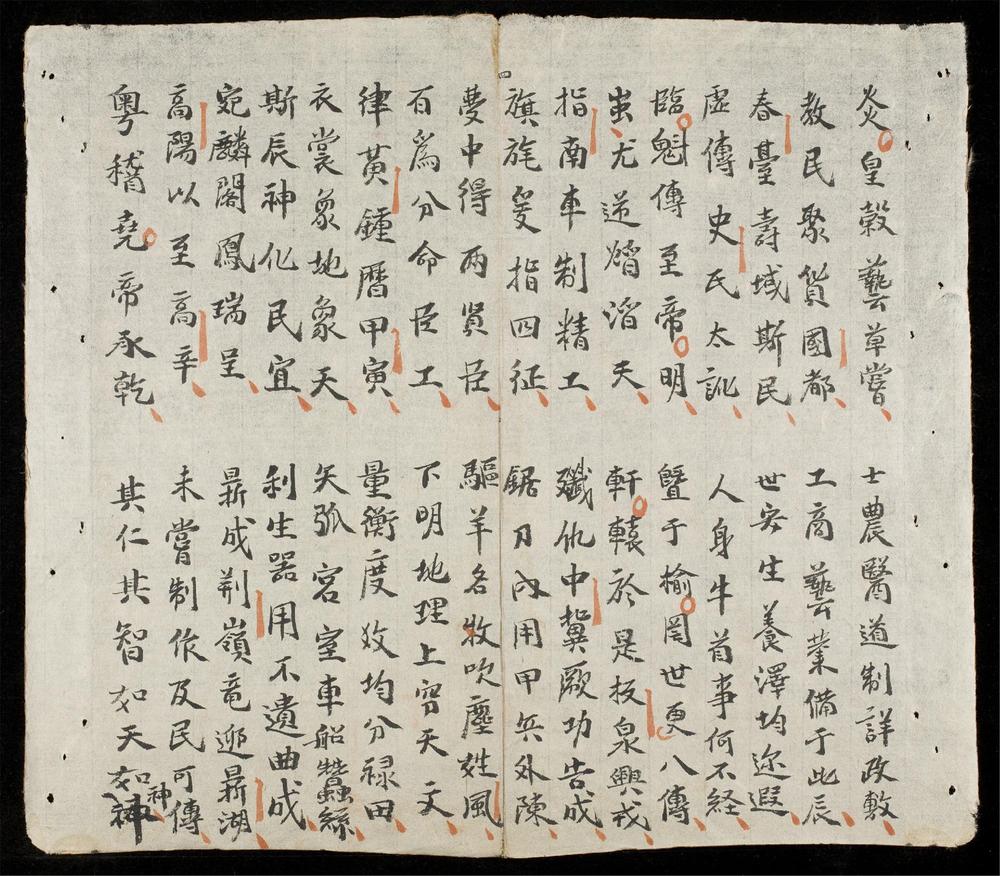 炎皇穀藝草嘗 士農醫道制詳政敷
教民聚貨國都 工商藝業備于此辰
春臺壽域斯民 世安生養澤均迩遐
虛傳史氏太訛 人身牛首事何不経
臨魁傳至帝明 暨于榆罔世更八傳
蚩尤逆熖滔天 軒轅於是板泉興戎
指南車制精工 殲仇中冀厥功告成
旗旄指四征 鋸刀內用甲兵外陳
夢中得兩贤臣 驅羊名牧吹塵姓風
百爲分命臣工 下明地理上穷天文
律黃鍾曆甲寅 量衡度均分禄田
衣裳象地象天 矢弧宮室車船蠶絲
斯辰神化民宜 利生器用不遺曲成
宛麟閣鳳瑞呈 鼎成荆嶺竜迎鼎湖
高陽以至高辛 未嘗制作及民可傳
粵稽堯帝承乾 其仁其智如天如神
神